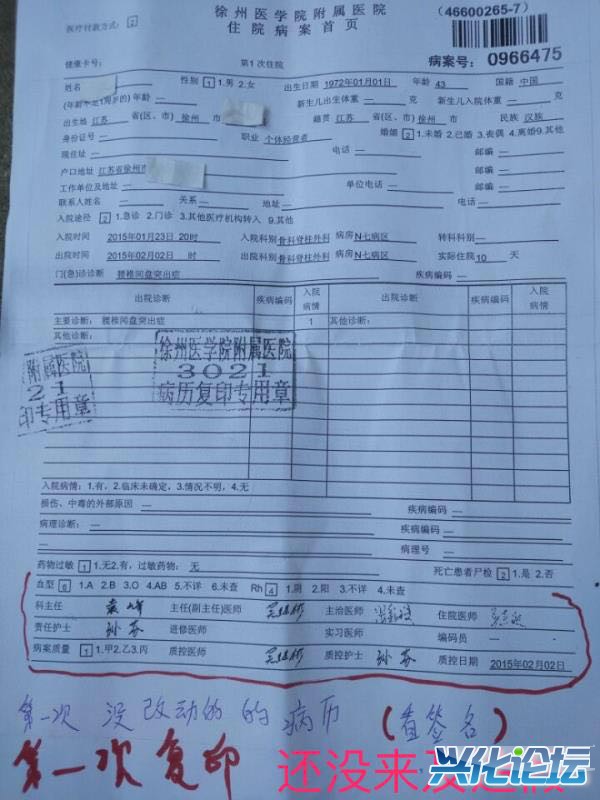 徐州医学院附属医院
(46600265-7)
医疗付款方式: 2
住院病案首页
健康卡号: 第1次住院 病案号: 0966475
姓名 性别 1 1.男 2.女 出生日期 1972年01月01日 年龄 43 国籍 中国
(年龄不足1周岁的) 年龄 — 新生儿出生体重 — 克 新生儿入院体重 — 克
出生地 江苏 省(区、市) 徐州 市 籍贯 江苏 省(区、市) 徐州 市 民族 汉族
身份证号 — 职业 个体经营者 婚姻 2 1.未婚 2.已婚 3.丧偶 4.离婚 9.其他
现住址 — 电话 — 邮编 —
户口地址 江苏省徐州市 邮编 —
工作单位及地址 — 单位电话 — 邮编 —
联系人姓名 — 关系 — 地址 — 电话 —
入院途径 2 1.急诊 2.门诊 3.其他医疗机构转入 9.其他
入院时间 2015年01月23日 20时 入院科别 骨科脊柱外科 病房 N七病区 转科科别 —
出院时间 2015年02月02日 时 出院科别 骨科脊柱外科 病房 N七病区 实际住院 10 天
门(急)诊诊断 腰椎间盘突出症 疾病编码 —
出院诊断 疾病编码 入院病情 出院诊断 疾病编码 入院病情
主要诊断: 腰椎间盘突出症 1 其他诊断:
其他诊断:
徐州医学院附属医院
3021
病历复印专用章
附属医院
21
印专用章
入院病情: 1.有, 2.临床未确定, 3.情况不明, 4.无
损伤、中毒的外部原因 — 疾病编码 —
病理诊断: — 疾病编码 —
病理号 —
药物过敏 1 1.无 2.有, 过敏药物: 无 死亡患者尸检 2 1.是 2.否
血型 6 1.A 2.B 3.O 4.AB 5.不详 6.未查 Rh 4 1.阴 2.阳 3.不详 4.未查
科主任 主任(副主任)医师 主治医师 住院医师
责任护士 孙芬 进修医师 实习医师 编码员 —
病案质量 1 1.甲 2.乙 3.丙 质控医师 质控护士 孙芬 质控日期 2015年02月02日
第一次 没改动的 的病历 (看签名)
第一次复印
还没来
兴化论坛